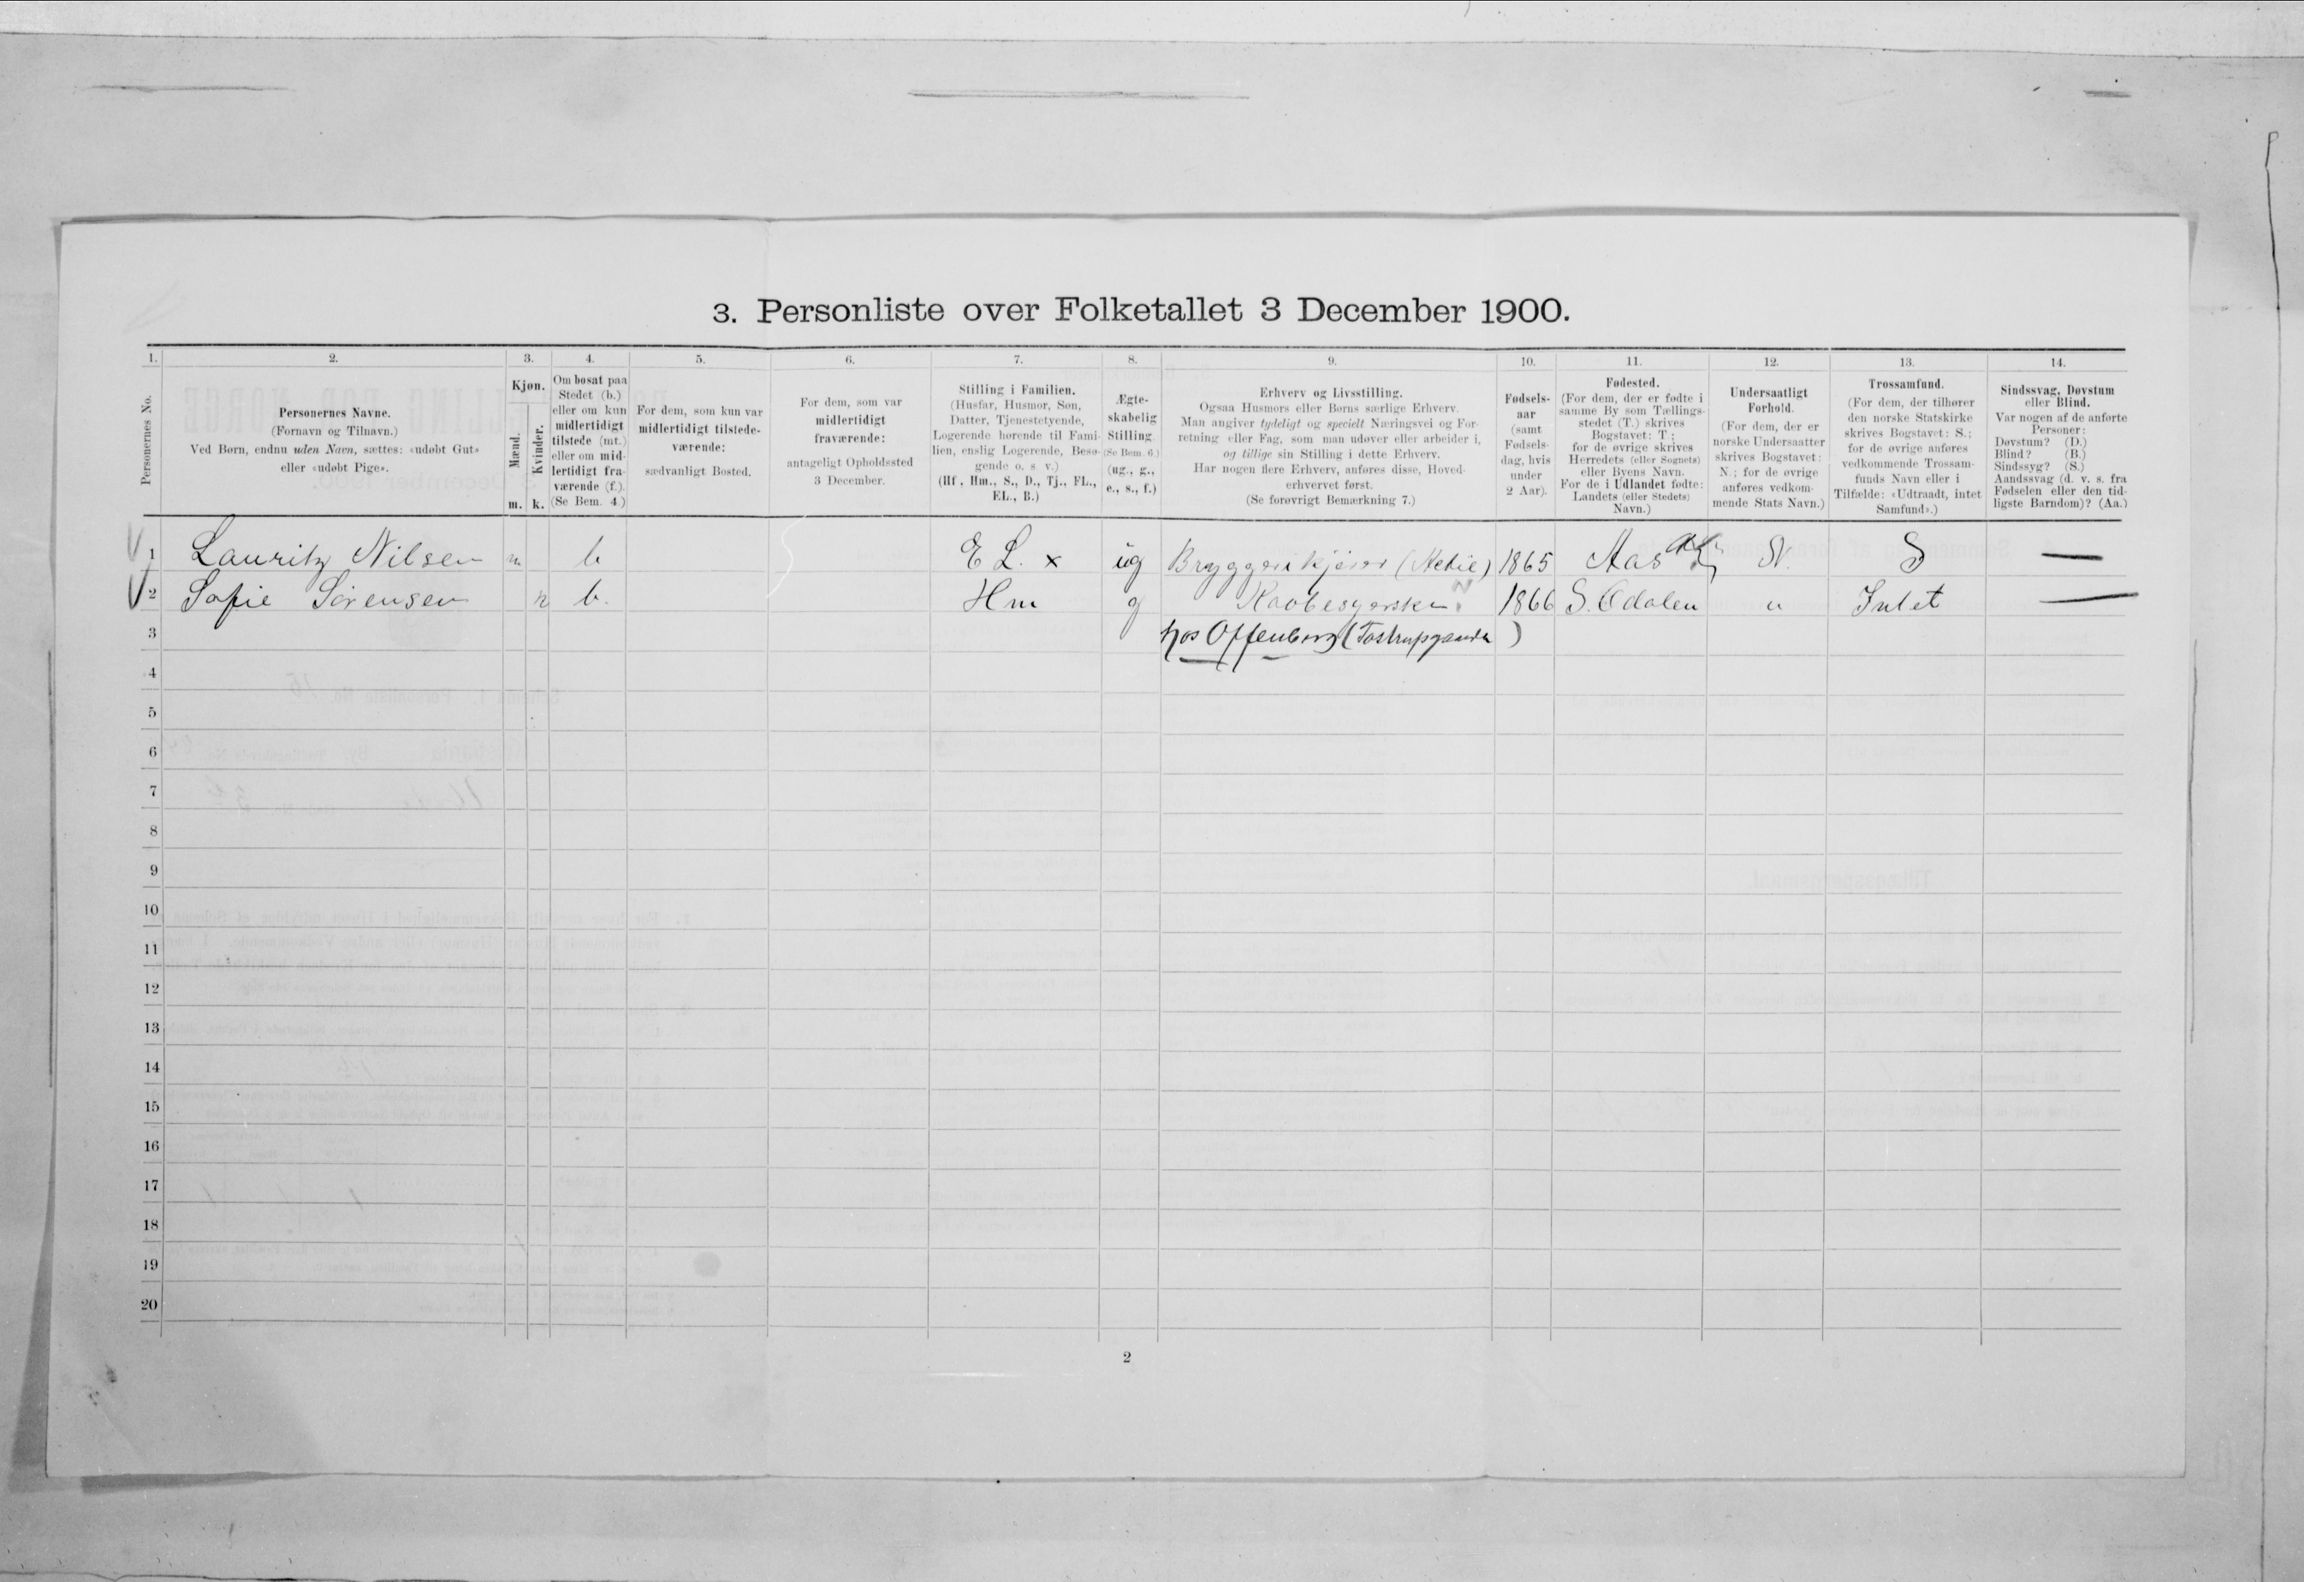 3. Personliste over Folketallet 3 December 1900.
1. 2. 3. 4. 5. 6. 7. 8. 9. 10. 11. 12. 13. 14.
Personernes No.
Personernes Navne.
(Fornavn og Tilnavn.)
Ved Børn, endnu uden Navn, sættes: «udøbt Gut»
eller «udøbt Pige».
Kjøn.
Mænd.
Kvinder.
m. k.
Om bosat paa
Stedet (b.)
eller om kun
midlertidigt
tilstede (mt.)
eller om mid-
lertidigt fra-
værende (f.).
(Se Bem. 4.)
For dem, som kun var
midlertidigt tilstede-
værende:
sædvanligt Bosted.
For dem, som var
midlertidigt
fraværende:
antageligt Opholdssted
3 December.
Stilling i Familien.
(Husfar, Husmor, Søn,
Datter, Tjenestetyende,
Logerende hørende til Fami-
lien, enslig Logerende, Besø-
gende o. s v.)
(Hf., Hm., S., D., Tj., FL.,
EL., B.)
Ægte-
skabelig
Stilling.
(Se Bem. 6.)
(ug., g.,
e., s., f.)
Erhverv og Livsstilling.
Ogsaa Husmors eller Børns særlige Erhverv.
Man angiver tydeligt og specielt Næringsvei og For-
retning eller Fag, som man udøver eller arbeider i,
og tillige sin Stilling i dette Erhverv.
Har nogen flere Erhverv, anføres disse, Hoved-
erhvervet først.
(Se forøvrigt Bemærkning 7.)
Fødsels-
aar
(samt
Fødsels-
dag, hvis
under
2 Aar).
Fødested.
(For dem, der er fødte i
samme By som Tællings-
stedet (T.) skrives
Bogstavet: T.;
for de øvrige skrives
Herredets (eller Sognets)
eller Byens Navn.
For de i Udlandet fødte:
Landets (eller Stedets)
Navn.)
Undersaatligt
Forhold.
(For dem, der er
norske Undersaatter
skrives Bogstavet:
N.; for de øvrige
anføres vedkom-
mende Stats Navn.)
Trossamfund.
(For dem, der tilhører
den norske Statskirke
skrives Bogstavet: S.;
for de øvrige anføres
vedkommende Trossam-
funds Navn eller i
Tilfælde: «Udtraadt, intet
Samfund».)
Sindssvag, Døvstum
eller Blind.
Var nogen af de anførte
Personer:
Døvstum? (D.)
Blind? (B.)
Sindssyg? (S.)
Aandssvag (d. v. s. fra
Fødselen eller den tid-
ligste Barndom)? (Aa.)
1 Lauritz Nilsen m b E L. x ug Bryggerikjører (Aktie) 1865 Aas N. S —
2 Sofie Sörensen k b. Hm g Kaabesyerske 1866 S. Odalen " Intet —
3 hos Offenberg (Tostrupgaarden)
4
5
6
7
8
9
10
11
12
13
14
15
16
17
18
19
20
2